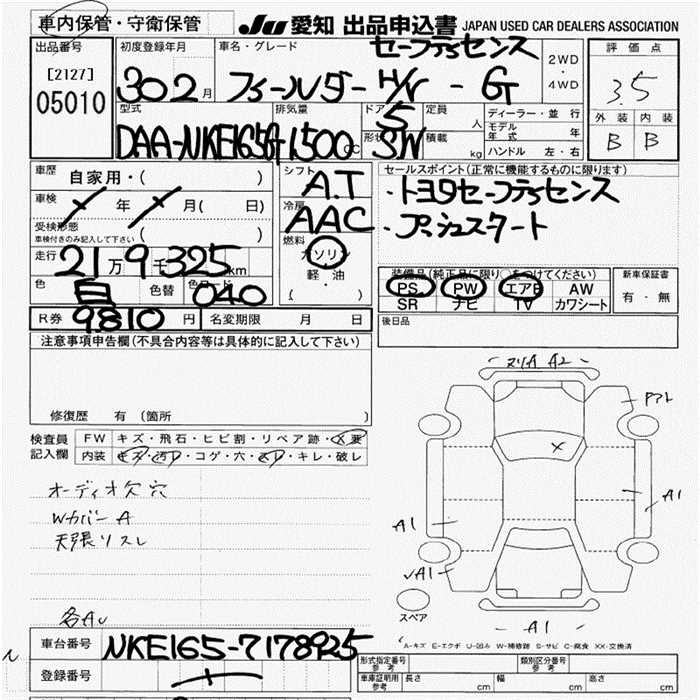 車内保管・守衛保管
JU 愛知 出品申込書 JAPAN USED CAR DEALERS ASSOCIATION
出品番号
[2127]
05010
初度登録年月
302月
車名・グレード
セーフティセンス
フィールダー H/V - G
2WD
・
4WD
評価点
3.5
外装 内装
B B
型式
DAA-NKE165G
排気量
1500cc
ドア
5
形状
SW
定員
人
積載
kg
ディーラー・並行
モデル年式 年
ハンドル 左・右
車歴 自家用・( )
車検 年 月( 日)
受検形態
車検付きのみ記入して下さい ( )
走行 21万9千325km
色 白 色替 色コード 040
シフト
A.T
冷房
AAC
燃料
ガソリン
軽・油
( )
セールスポイント(正常に機能するものに限ります)
・トヨタセーフティセンス
・プッシュスタート
装備品(純正品に限り○をつけてください)
PS PW エアB AW
SR ナビ TV カワシート
新車保証書
有・無
R券 9.810円 名変期限 月 日
後日品
注意事項申告欄(不具合内容等は具体的に記入して下さい)
修復歴 有(箇所 )
検査員記入欄
FW キズ・飛石・ヒビ割・リペア跡・X要
内装 キズ・汚レ・コゲ・穴・スレ・キレ・破レ
オーディオ欠 穴
Wカバー A
天張リスレ
各AU
ヌリA A2
アト
X
A1
A1
√A1
A1
スペア
A-キズ E-エクボ U-凹み W-補修跡 S-サビ C-腐食 XX-交換済
車台番号 NKE165-7178925
登録番号
形式指定番号
参考
類別区分番号
参考
車庫証明用
参考
長さ cm 幅 cm 高さ cm